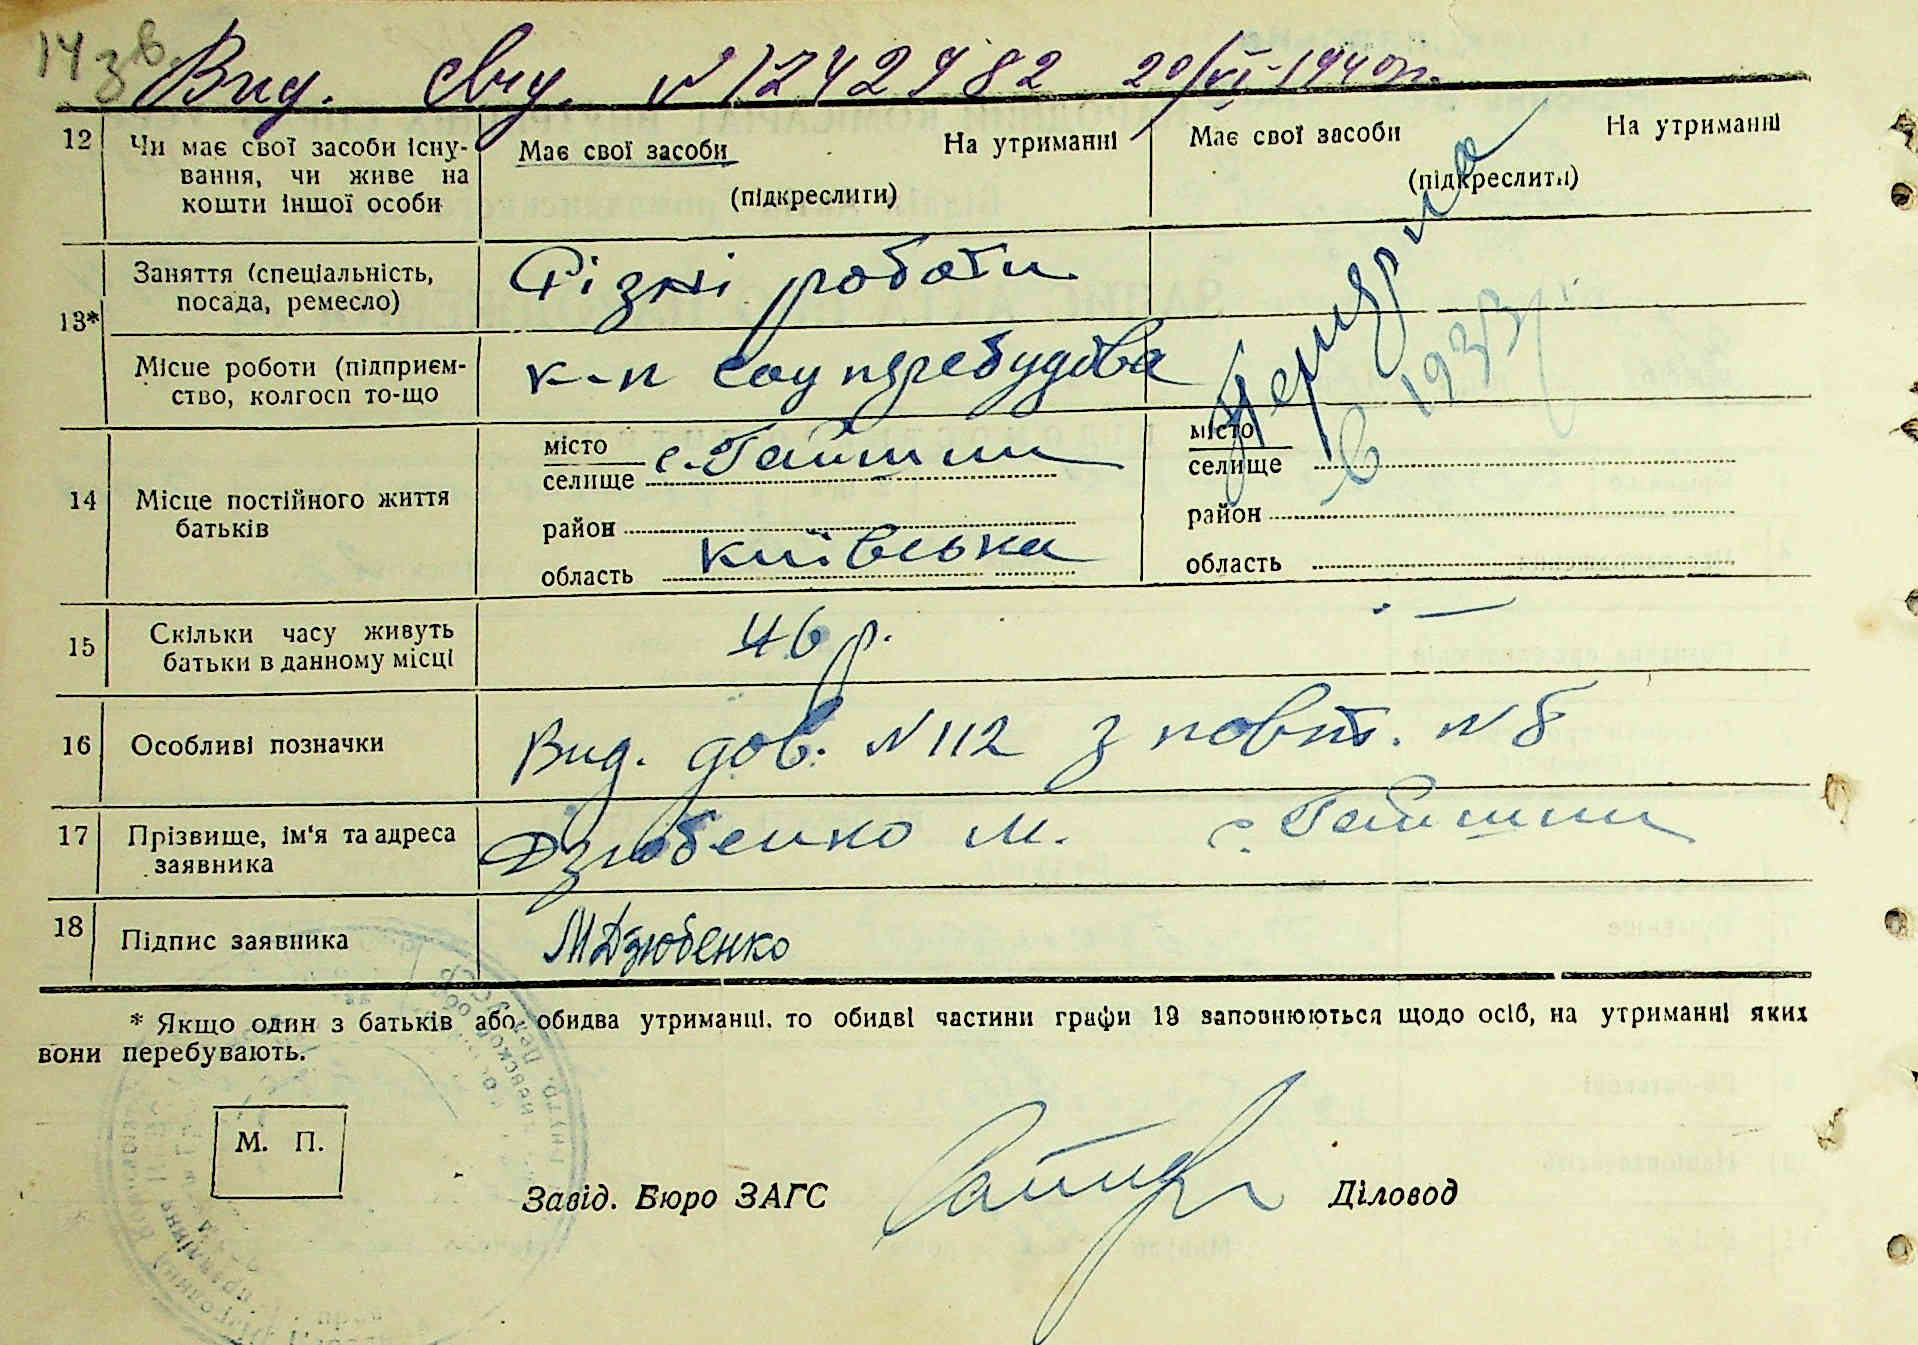 14 зв.
Вид. свід. № 1242982 20/VI-1940 р.
12 Чи має свої засоби існу-
вання, чи живе на
кошти іншої особи
Має свої засоби На утриманні
(підкреслити)
Має свої засоби На утриманні
(підкреслити)
13* Заняття (спеціальність,
посада, ремесло)
Різні роботи
Місце роботи (підприєм-
ство, колгосп то-що
к-п Соцперебудова
померла
в 1933
14 Місце постійного життя
батьків
місто
селище с. Гайшин
район
область Київська
місто
селище
район
область
15 Скільки часу живуть
батьки в данному місці
46 р. —
16 Особливі позначки
Вид. дов. № 112 з повт. № 8
17 Прізвище, ім'я та адреса
заявника
Дзюбенко М. с. Гайшин
18 Підпис заявника
МДзюбенко
* Якщо один з батьків або, обидва утриманці, то обидві частини графи 13 заповнюються щодо осіб, на утриманні яких
вони перебувають.
М. П.
Завід. Бюро ЗАГС Діловод